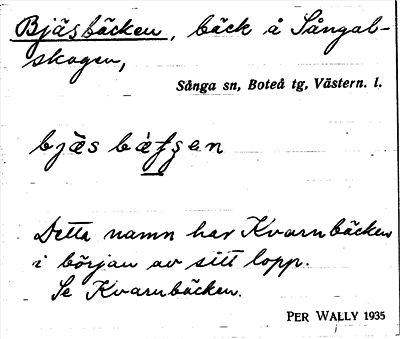 Bjäsbäcken, bäck å Sångal-
skogen,
Sånga sn, Boteå tg, Västern. l.
Detta namn har Kvarnbäcken
i början av sitt lopp.
Se Kvarnbäcken.
PER WALLY 1935